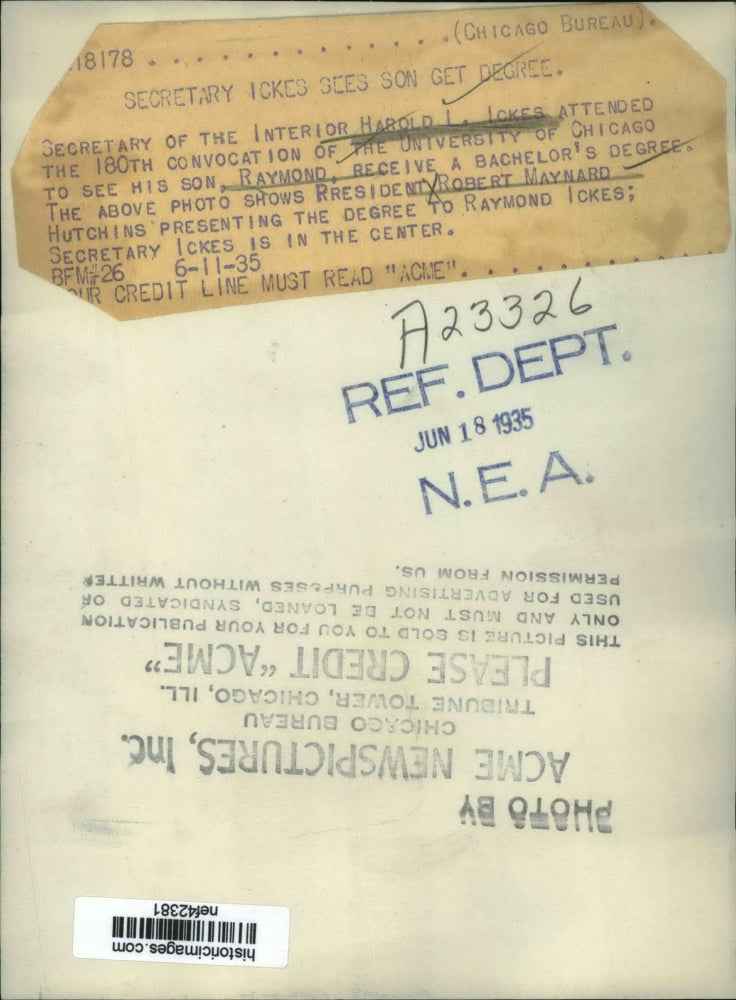 18178 . . . . . . . . . . . . . .(CHICAGO BUREAU).
SECRETARY ICKES SEES SON GET DEGREE.
SECRETARY OF THE INTERIOR HAROLD L. ICKES ATTENDED
THE 180TH CONVOCATION OF THE UNIVERSITY OF CHICAGO
TO SEE HIS SON, RAYMOND, RECEIVE A BACHELOR'S DEGREE.
THE ABOVE PHOTO SHOWS RRESIDENT ROBERT MAYNARD
HUTCHINS PRESENTING THE DEGREE TO RAYMOND ICKES;
SECRETARY ICKES IS IN THE CENTER.
BFM#26 6-11-35
OUR CREDIT LINE MUST READ "ACME". . . . . . . . . . .
A23326
REF. DEPT.
JUN 18 1935
N.E.A.
PHOTO BY
ACME NEWSPICTURES, Inc.
CHICAGO BUREAU
TRIBUNE TOWER, CHICAGO, ILL.
PLEASE CREDIT "ACME"
THIS PICTURE IS SOLD TO YOU FOR YOUR PUBLICATION
ONLY AND MUST NOT BE LOANED, SYNDICATED OR
USED FOR ADVERTISING PURPOSES WITHOUT WRITTEN
PERMISSION FROM US.
historicimages.com
nef42381